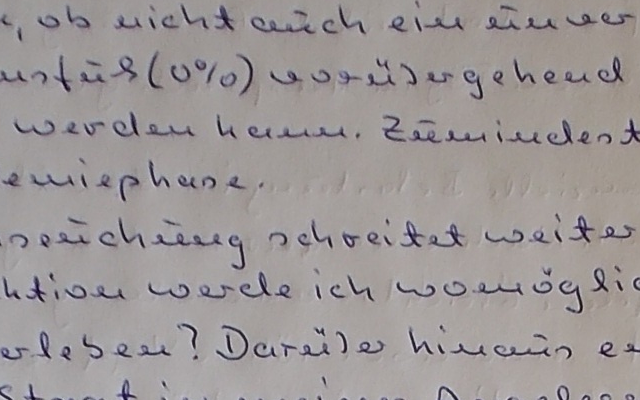 , ob nicht auch ein unver
nsfuß (0%) vorübergehend
werden kann. Zumindest
emiephase.
seuchung schreitet weiter
ktion werde ich womöglic
erleben? Darüber hinaus er